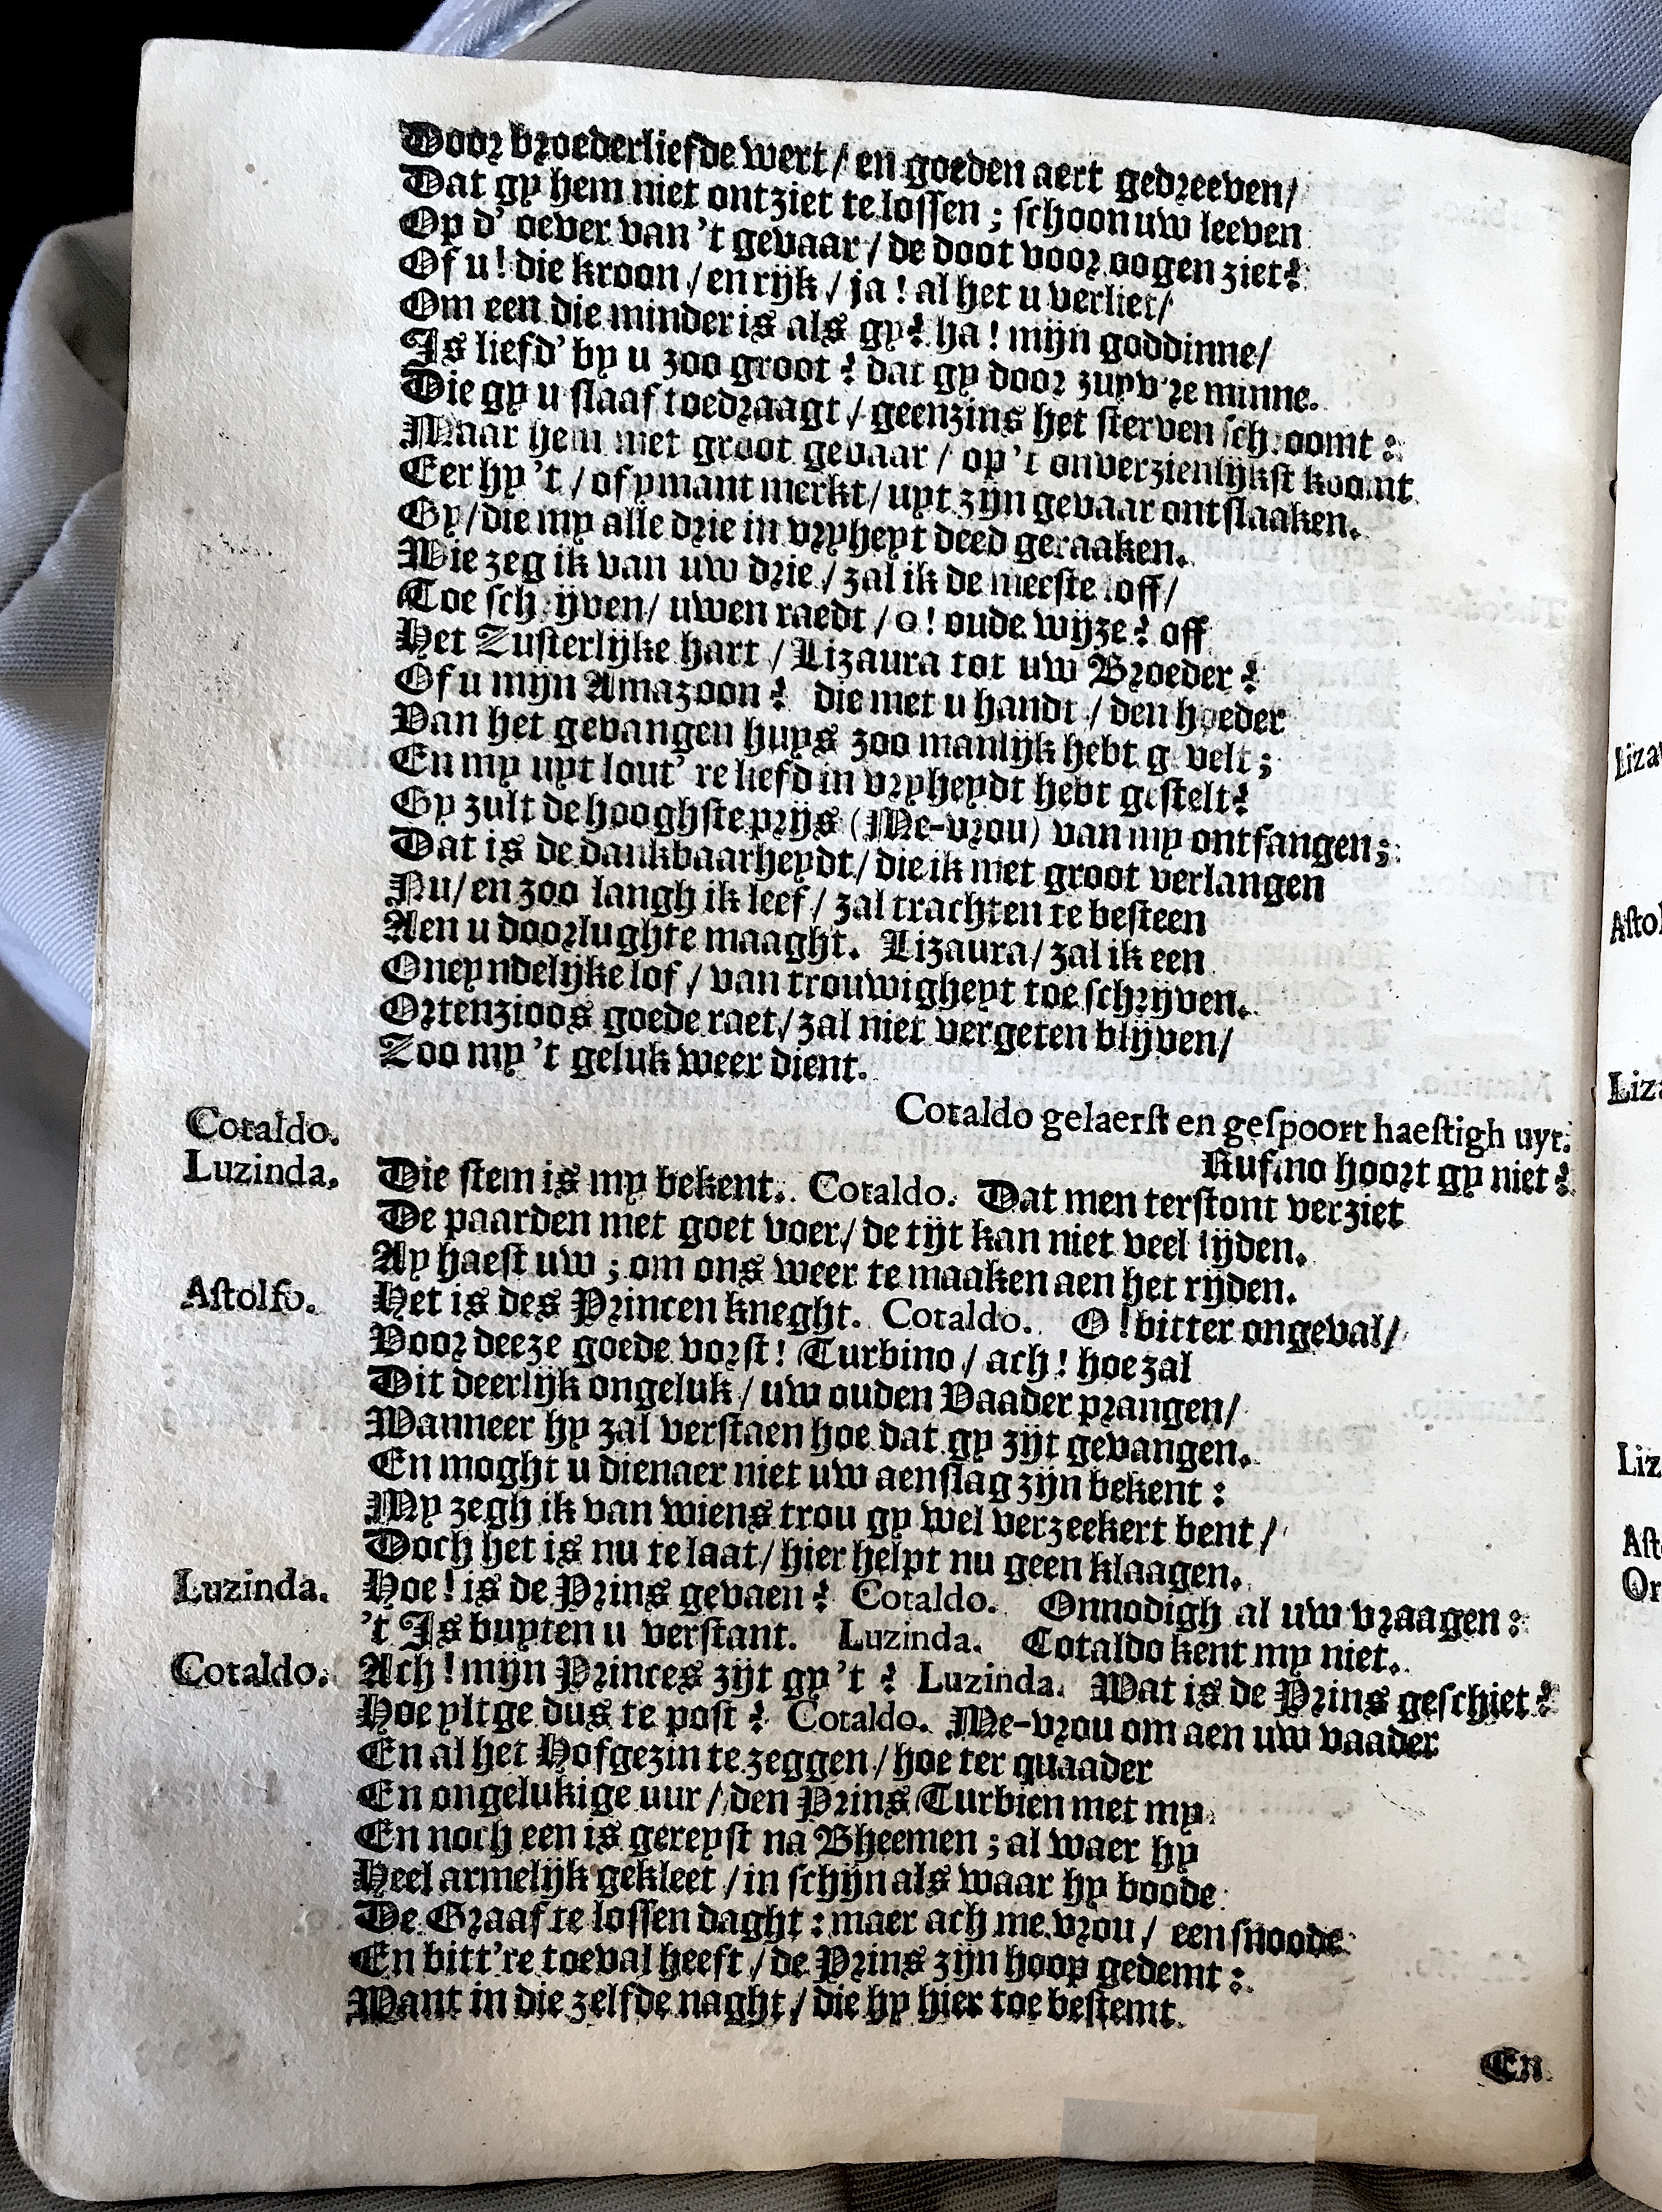 Door broederliefde wert / en goeden aert gedreeven /
Dat gy hem niet ontziet te lossen ; schoon uw leeven
Op d' oever van 't gevaar / de doot voor oogen ziet?
Of u ! die kroon / en rijk / ja ! al het u verliet /
Om een die minder is als gy? ha ! mijn goddinne /
Is liefd' by u zoo groot ? dat gy door zuyv're minne.
Die gy u slaaf toedraagt / geenzins het sterven schroomt :
Maar hem met groot gevaar / op 't onverzienlijkst koomt
Eer hy 't / of ymant merkt / uyt zijn gevaar ontslaaken.
Gy / die my alle drie in vryheyt deed geraaken.
Wie zeg ik van uw drie / zal ik de meeste loff /
Toe schrijven / uwen raedt / o ! oude wijze ? off
Het Zusterlijke hart / Lizaura tot uw Broeder ?
Of u mijn Amazoon ? die met u handt / den hoeder
Van het gevangen huys zoo manlijk hebt gevelt ;
En my uyt lout' re liefd in vryheydt hebt gestelt?
Gy zult de hooghste prijs (Me-vrou) van my ontfangen ;
Dat is de dankbaarheydt / die ik met groot verlangen
Nu / en zoo langh ik leef / zal trachten te besteen
Aen u doorlughte maaght. Lizaura / zal ik een
Oneyndelijke lof / van trouwigheyt toe schrijven.
Ortenzioos goede raet / zal niet vergeten blijven /
Zoo my 't geluk weer dient.
Cotaldo gelaerst en gespoort haestigh uyt.
Cotaldo. Rufino hoort gy niet ?
Luzinda. Die stem is my bekent. Cotaldo. Dat men terstont verziet
De paarden met goet voer / de tijt kan niet veel lijden.
Ay haest uw ; om ons weer te maaken aen het rijden.
Astolfo. Het is des Princen kneght. Cotaldo. O ! bitter ongeval /
Voor deeze goede vorst ! Turbino / ach ! hoe zal
Dit deerlijk ongeluk / uw ouden Vaader prangen /
Wanneer hy zal verstaen hoe dat gy zijt gevangen.
En moght u dienaer niet uw aenslag zijn bekent :
My zegh ik van wiens trou gy wel verzeekert bent /
Doch het is nu te laat / hier helpt nu geen klaagen.
Luzinda. Hoe ! is de Prins gevaen ? Cotaldo. Onnodigh al uw vraagen :
't Is buyten u verstant. Luzinda. Cotaldo kent my niet.
Cotaldo. Ach ! mijn Princes zijt gy 't ? Luzinda. Wat is de Prins geschiet ?
Hoe yltge dus te post ? Cotaldo. Me-vrou om aen uw vaader
En al het Hofgezin te zeggen / hoe ter quaader
En ongelukige uur / den Prins Turbien met my
En noch een is gereyst na Bheemen ; al waer hy
Heel armelijk gekleet / in schijn als waar hy boode
De Graaf te lossen daght : maer ach me vrou / een snoode
En bitt're toeval heeft / de Prins zijn hoop gedemt :
Want in die zelfde naght / die hy hier toe bestemt
En
Liza
Astol
Liza
Liz
Ast
Or